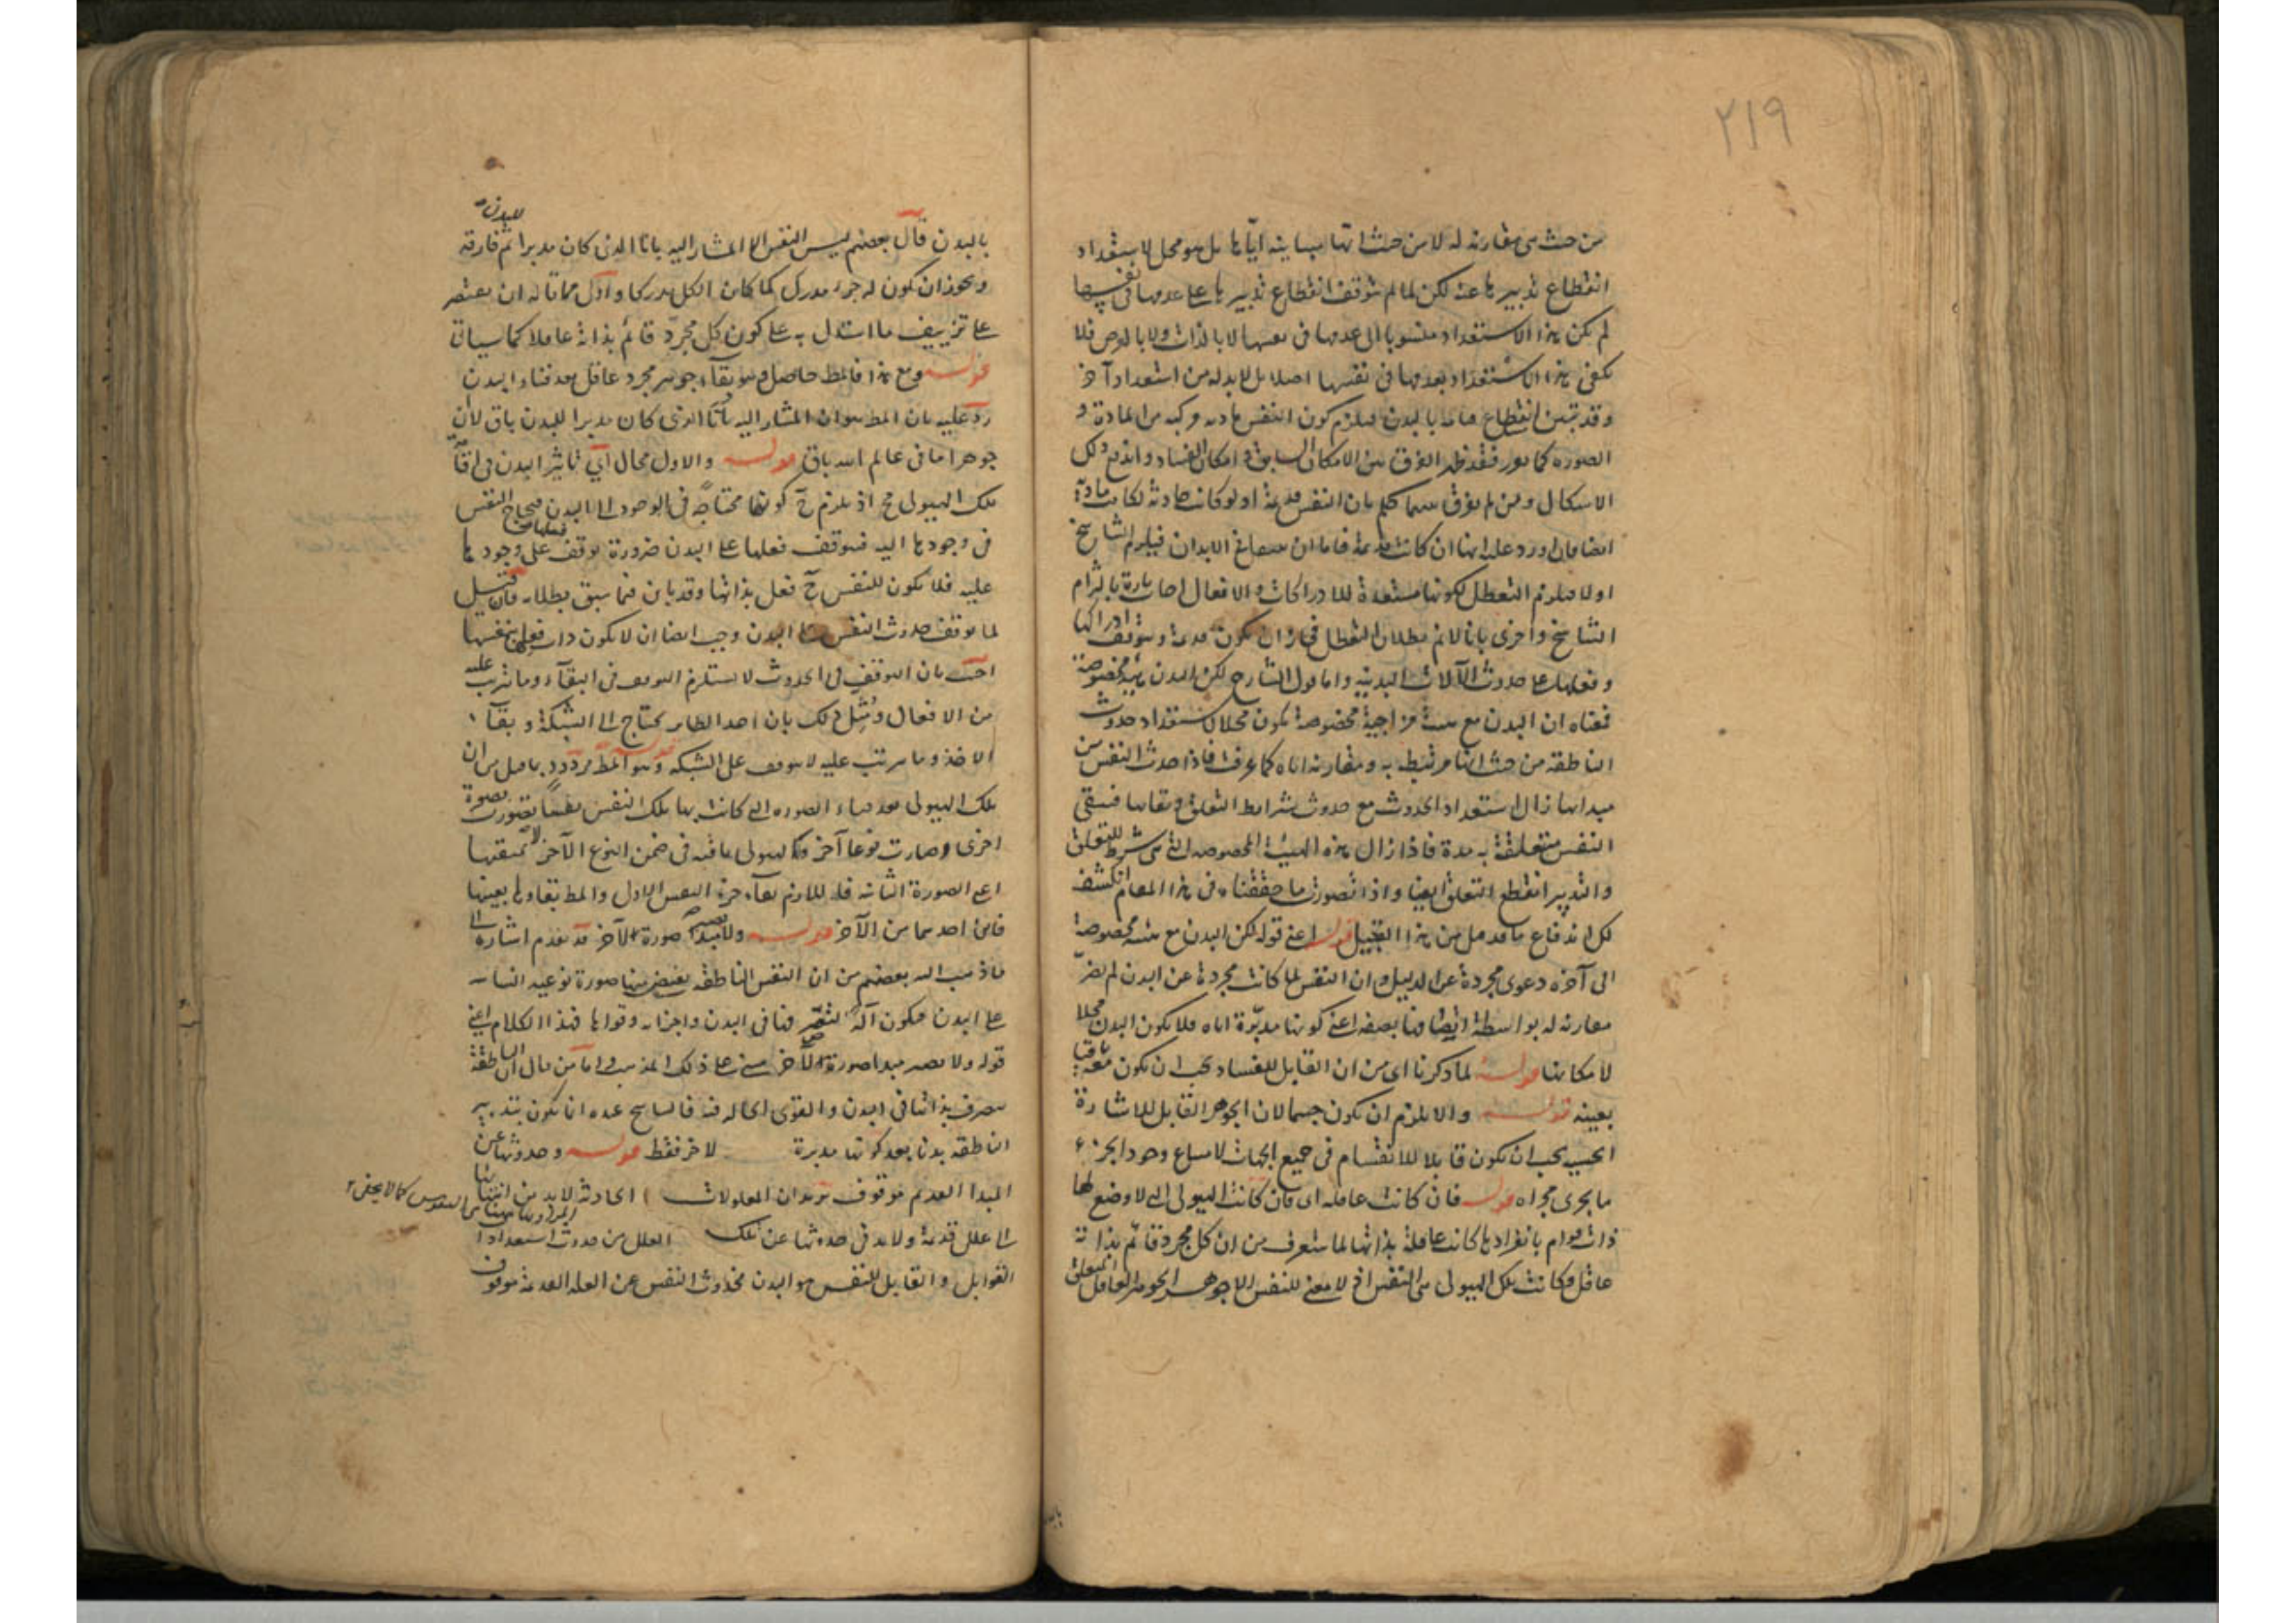 ٢١٩
من حيث هي مقارنة له لا من حيث انها مباينة اياها بل هو محل لاستعداد
انقطاع تدبيرها عنه لكن لما لم يتوقف انقطاع تدبيرها على عدمها في نفسها
لم يكن هذا الاستعداد منسوبا الى عدمها في نفسها لا بالذات ولا بالعرض فلا
يكفي هذا الاستعداد لعدمها في نفسها اصلا بل لا بد له من استعداد آخر
وقد تبين انقطاع بالبدن فيلزم كون النفس مادية مركبة من المادة و
الصورة كما مر فقد ظهر الفرق بين الامكان السابق و امكان الفساد واندفع ذلك
الاشكال ومن لم يفرق بينهما حكم بان النفس قديمة اذ لو كانت حادثة لكانت مادية
ايضا فان اورد عليه انها ان كانت قديمة فاما ان الابدان فيلزم التناسخ
اولا فيلزم التعطل لكونها مستعدة للادراكات والافعال اجاب تارة بالتزام
التناسخ واخرى بانا لا نم بطلان التعطل فجاز ان يكون قديمة ويتوقف ادراكها
وفعلها على حدوث الآلات البدنية واما قول الشارح لكن البدن مع هيئة مخصوصة
فمعناه ان البدن مع هيئة مزاجية مخصوصة يكون محلا لاستعداد حدوث
الناطقة من حيث انها مرتبطة به ومقارنة اياه كما عرفت فاذا حدث النفس من
مبدائها زال استعداد الحدوث مع حدوث شرائط التعلق وبقائها فيبقى
النفس متعلقة به مدة فاذا زال هذه الهيئة المخصوصة التي هي شرط للتعلق
والتدبير انقطع التعلق ايضا واذا تصورت ما حققناه في هذا المقام انكشف
لك اندفاع ما قد قيل من هذا القبيل قوله اعني قوله لكن البدن مع هيئة مخصوصة
الى آخره دعوى مجردة عن الدليل وان النفس لما كانت مجردة عن البدن لم يضر
مقارنة له بواسطة اتصافها بصفة اعني كونها مدبرة اياه فلا يكون البدن محلا
لامكانها قوله لما ذكرنا اى من ان القابل للفساد يجب ان يكون باقيا معه
بعينه قوله والا يلزم ان يكون جسما لان الجوهر القابل للاشارة
الحسية يجب ان يكون قابلا للانقسام في جميع الجهات لامتناع وجود الجزء و
ما يجرى مجراه قوله فان كانت عاقلة اى فان كانت الهيولى التي لا وضع لها
ذات قوام بانفرادها كانت عاقلة بذاتها لما ستعرف من ان كل مجرد قائم بذاته
عاقل وكانت تلك الهيولى هي النفس اذ لا معنى للنفس الا جوهر الجوهر العاقل المتعلق
بالبدن
بالبدن قال بعضهم ليس النفس الا المشار اليه بانا الذي كان مدبرا للبدن ثم فارقه
ويجوز ان يكون له جزء مدرك كما كان الكل مدركا واول مما قاله ان يقتصر
على تزييف ما استدل به على كون كل مجرد قائم بذاته عاقلا كما سيأتي
قوله ومع هذا فالمط حاصل وهو بقاء جوهر مجرد عاقل بعد فناء البدن
رد عليه بان المط هو ان المشار اليه بانا الذي كان مدبرا للبدن باق لا ان
جوهرا ما في عالم الله باق قوله والاول محال اى تأثير البدن في بقاء
تلك الهيولى مح اذ يلزم ح كونها محتاجة في الوجود الى البدن فيحتاج النفس
في وجودها اليه فيتوقف فعلها على البدن ضرورة توقف فعلها على وجودها
عليه فلا يكون للنفس ح فعل بذاتها وقد بان فيما سبق بطلانه فان قيل
لما توقف حدوث النفس على البدن وجب ايضا ان لا يكون ذات فعل بنفسها
اجيب بان التوقف في الحدوث لا يستلزم التوقف في البقاء وما يترتب عليه
من الافعال ومثل ذلك بان اخذ الطاير يحتاج الى الشبكة و بقاء
الاخذ وما يترتب عليه لا يتوقف على الشبكة قوله وهو المط مردود بما قيل من ان
تلك الهيولى بعد فناء الصورة التي كانت بها تلك النفس نفسا تصورت بصورة
اخرى وصارت نوعا آخر فالهيولى باقية في ضمن النوع الآخر
اعني الصورة الثانية فاللازم بقاء جزء النفس الاول والمط بقاؤها بعينها
فاين احدهما من الآخر قوله ولا يصير مبدا صورة لآخر قد تقدم اشارة الى
ما ذهب اليه بعضهم من ان النفس الناطقة يفيض منها صورة نوعية
على البدن فيكون آلة لتصرفها في البدن واجزائه وقواها فهذا الكلام اعني
قوله ولا يصير مبدا صورة لآخر مبني على ذلك المذهب واما من قال ان الناطقة
تتصرف بذاتها في البدن والقوى الحالة فيه فالتناسخ عنده ان يكون بتدبير
الناطقة بدنا بعد كونها مدبرة لآخر فقط قوله وحدوثها عن
المبدا القديم موقوف يريد ان المعلولات الحادثة لا بد من انتهائها
الى علل قديمة ولا بد في حدوثها عن تلك العلل من حدوث استعدادات
القوابل والقابل للنفس هو البدن فحدوث النفس عن العلة القديمة موقوف
النفوس كما لا يخفى